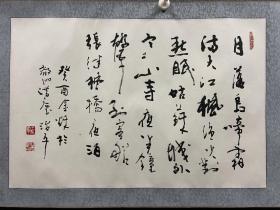 月落烏啼霜
满天江楓渔火對
愁眠姑蘇城外
寒山寺夜半鐘
聲到客船
張继楓橋夜泊
癸酉金秋於